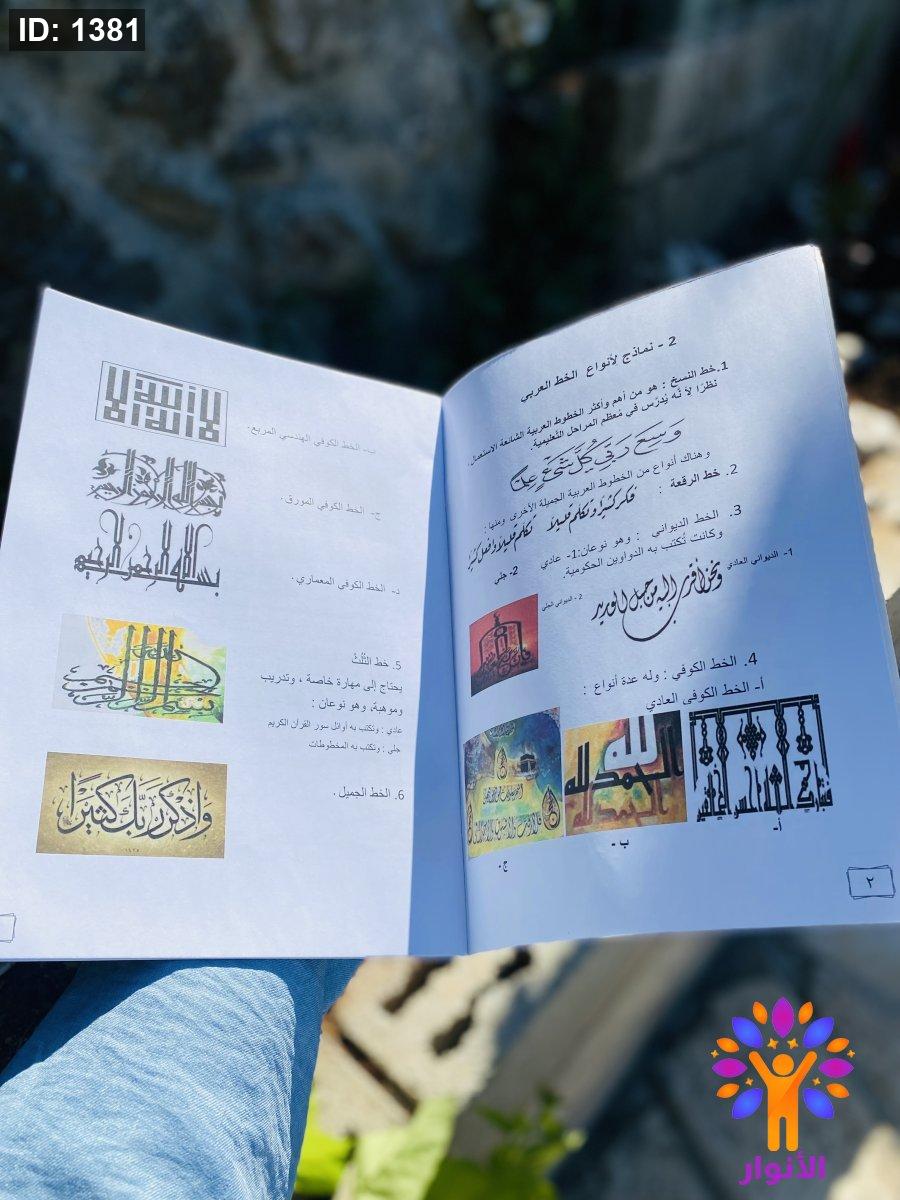 ID: 1381
2 - نماذج لأنواع الخط العربي
1.خط النسخ : هو من أهم وأكثر الخطوط العربية الشائعة الاستعمال،
نظرًا لأنّه يُدرّس في مُعظم المراحل التّعليمية.
وسع ربي كل شيء علما
وهناك أنواع من الخطوط العربية الجميلة الأخرى ومنها :
2. خط الرقعة :
فكر كثيرًا وتكلم قليلاً
3. الخط الديواني : وهو نوعان:1- عادي 2- جلي
وكانت تُكتب به الدواوين الحكومية.
1- الديواني العادي
ونحن أقرب إليه من حبل الوريد
2 - الديواني الجلي
4. الخط الكوفي : وله عدة أنواع :
أ- الخط الكوفي العادي
فتبارك الله أحسن الخالقين
الحمد لله
أ-
ب -
ج .
٢
ب- الخط الكوفي الهندسي المربع.
ج- الخط الكوفي المورق.
بسم الله الرحمن الرحيم
د- الخط الكوفي المعماري.
5. خط الثُلُثُ
يحتاج إلى مهارة خاصة ، وتدريب
وموهبة، وهو نوعان :
عادي : وتكتب به أوائل سور القرآن الكريم
جلي : وتكتب به المخطوطات
6. الخط الجميل .
وَاذْكُر رَبَّكَ كَثِيرًا
الأنوار